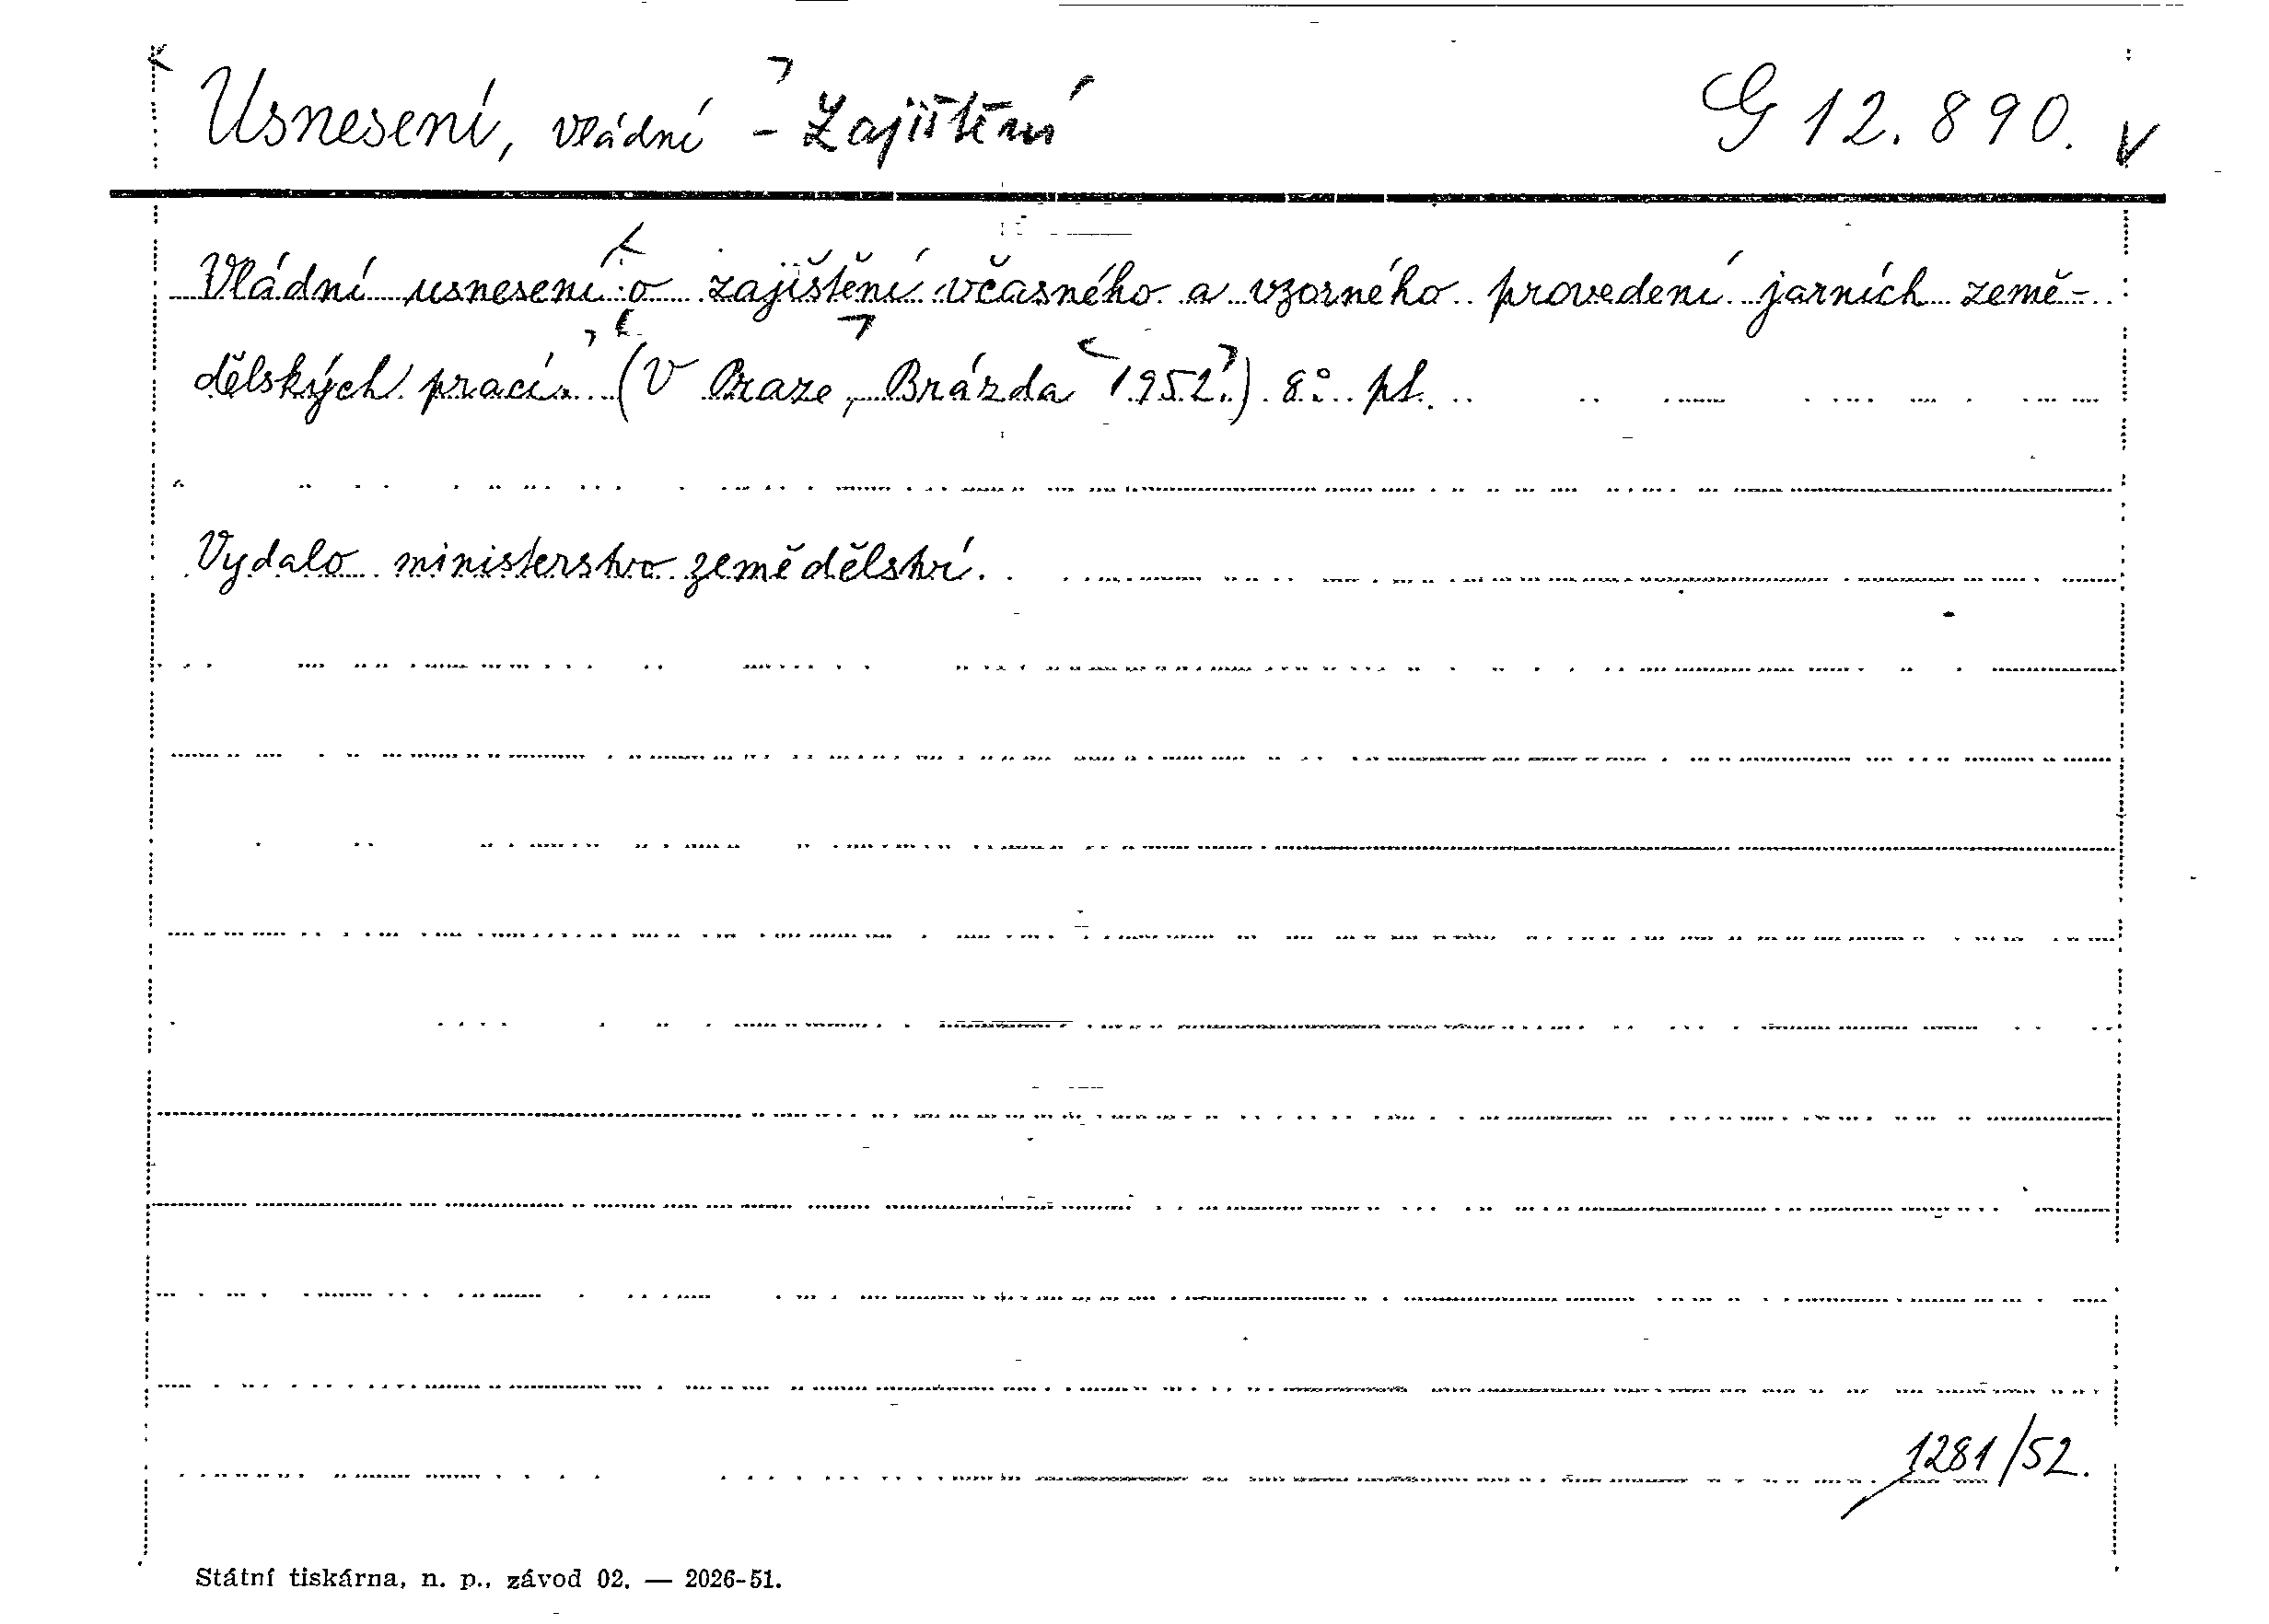 Usnesení, vládní - Zajištění G 12.890. V
Vládní usnesení o zajištění včasného a vzorného provedení jarních země-
dělských prací. (V Praze, Brázda 1952.) 8°. pl.
Vydalo ministerstvo zemědělství.
1281/52.
Státní tiskárna, n. p., závod 02. — 2026-51.